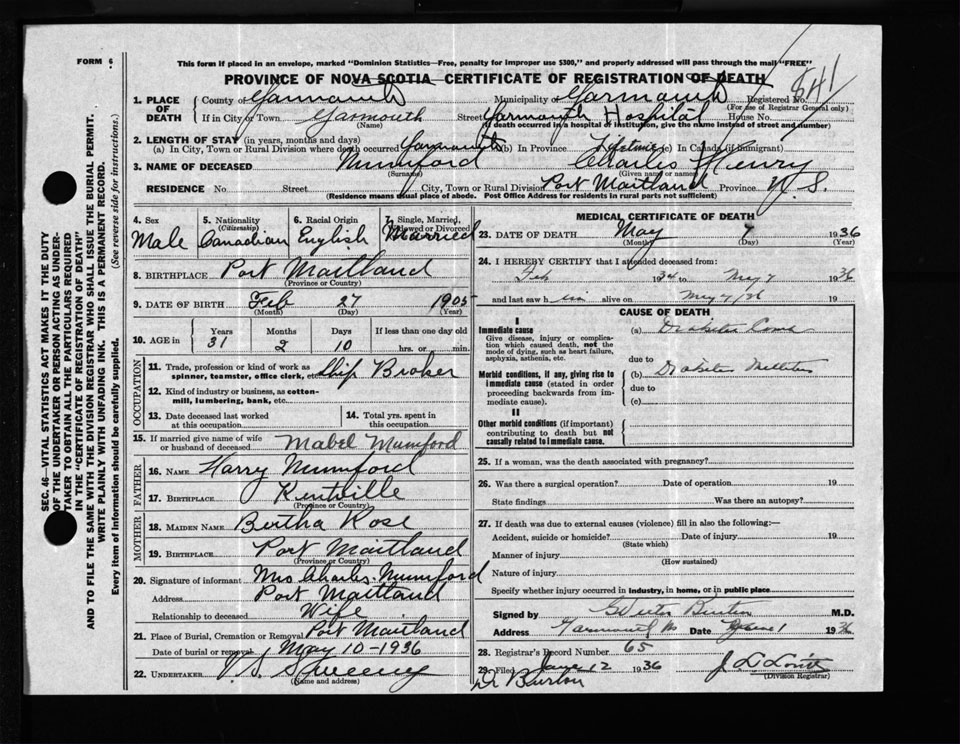 FORM 6
This form if placed in an envelope, marked "Dominion Statistics—Free, penalty for improper use $300," and properly addressed will pass through the mail "FREE"
PROVINCE OF NOVA SCOTIA—CERTIFICATE OF REGISTRATION OF DEATH
SEC. 46. VITAL STATISTICS ACT MAKES IT THE DUTY
OF THE UNDERTAKER OR PERSON ACTING AS UNDER-
TAKER TO OBTAIN ALL THE PARTICULARS REQUIRED
IN THE "CERTIFICATE OF REGISTRATION OF DEATH"
AND TO FILE THE SAME WITH THE DIVISION REGISTRAR WHO SHALL ISSUE THE BURIAL PERMIT.
WRITE PLAINLY WITH UNFADING INK. THIS IS A PERMANENT RECORD.
Every item of Information should be carefully supplied. (See reverse side for instructions.)
1. PLACE OF DEATH
County of Yarmouth Municipality of Yarmouth Registered No. 841
(For use of Registrar General only)
If in City or Town Yarmouth Street Yarmouth Hospital House No.
(Name) (If death occurred in a hospital or institution, give the name instead of street and number)
2. LENGTH OF STAY (in years, months and days)
(a) In City, Town or Rural Division where death occurred Yarmouth (b) In Province Lifetime (c) In Canada (if immigrant)
3. NAME OF DECEASED Mumford Charles Henry
(Surname) (Given name or names)
RESIDENCE No Street City, Town or Rural Division Port Maitland Province N.S.
(Residence means usual place of abode. Post Office Address for residents in rural parts not sufficient)
4. Sex 5. Nationality (Citizenship) 6. Racial Origin 7. Single, Married, Widowed or Divorced
Male Canadian English Married
8. BIRTHPLACE Port Maitland
(Province or Country)
9. DATE OF BIRTH Feb 27 1905
(Month) (Day) (Year)
10. AGE in Years Months Days If less than one day old
31 2 10 hrs. or min.
OCCUPATION
11. Trade, profession or kind of work as spinner, teamster, office clerk, etc. Ship Broker
12. Kind of industry or business, as cotton-mill, lumbering, bank, etc.
13. Date deceased last worked at this occupation
14. Total yrs. spent in this occupation
15. If married give name of wife or husband of deceased Mabel Mumford
FATHER
16. NAME Harry Mumford
17. BIRTHPLACE Kentville
(Province or Country)
MOTHER
18. MAIDEN NAME Bertha Rose
19. BIRTHPLACE Port Maitland
(Province or Country)
20. Signature of informant Mrs Charles Mumford
Address Port Maitland
Relationship to deceased Wife
21. Place of Burial, Cremation or Removal Port Maitland
Date of burial or removal May 10-1936
22. UNDERTAKER V. S. Sweeney
(Name and address)
MEDICAL CERTIFICATE OF DEATH
23. DATE OF DEATH May 7 1936
(Month) (Day) (Year)
24. I HEREBY CERTIFY that I attended deceased from:
Feb 1934 to May 7 1936
and last saw him alive on May 7/36 19
CAUSE OF DEATH
I
Immediate cause
Give disease, injury or complication which caused death, not the mode of dying, such as heart failure, asphyxia, asthenia, etc.
(a) Diabetes Coma
due to
Morbid conditions, if any, giving rise to immediate cause (stated in order proceeding backwards from immediate cause).
(b) Diabetes Mellitus
due to
(c)
II
Other morbid conditions (if important) contributing to death but not causally related to immediate cause.
25. If a woman, was the death associated with pregnancy?
26. Was there a surgical operation? Date of operation 19
State findings Was there an autopsy?
27. If death was due to external causes (violence) fill in also the following:—
Accident, suicide or homicide? Date of injury 19
(State which)
Manner of injury
(How sustained)
Nature of injury
Specify whether injury occurred in industry, in home, or in public place
Signed by Burton M.D.
Address Yarmouth Date June 1 1936
28. Registrar's Record Number 65
29. Filed June 12 1936
(Division Registrar)
Dr Burton